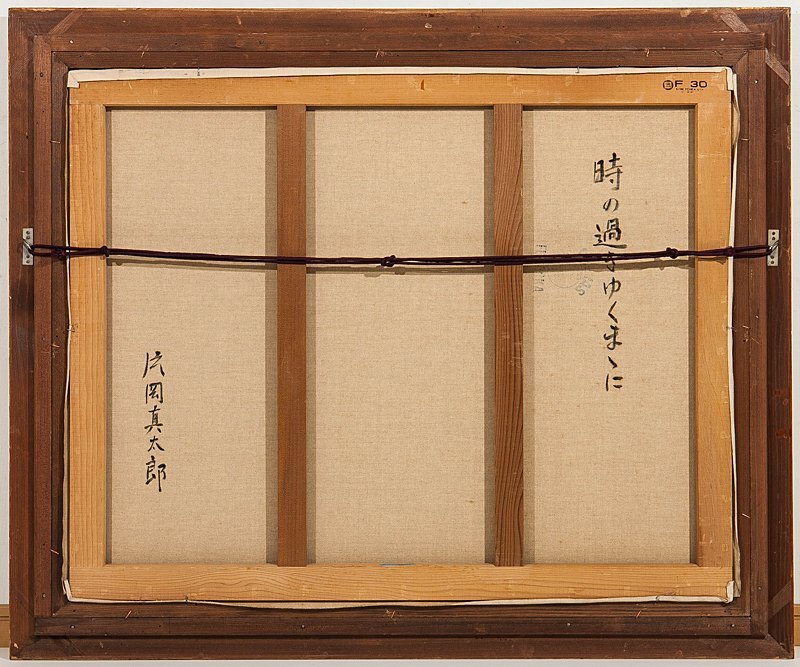 時の過きゆくまゝに
片岡真太郎
F 30